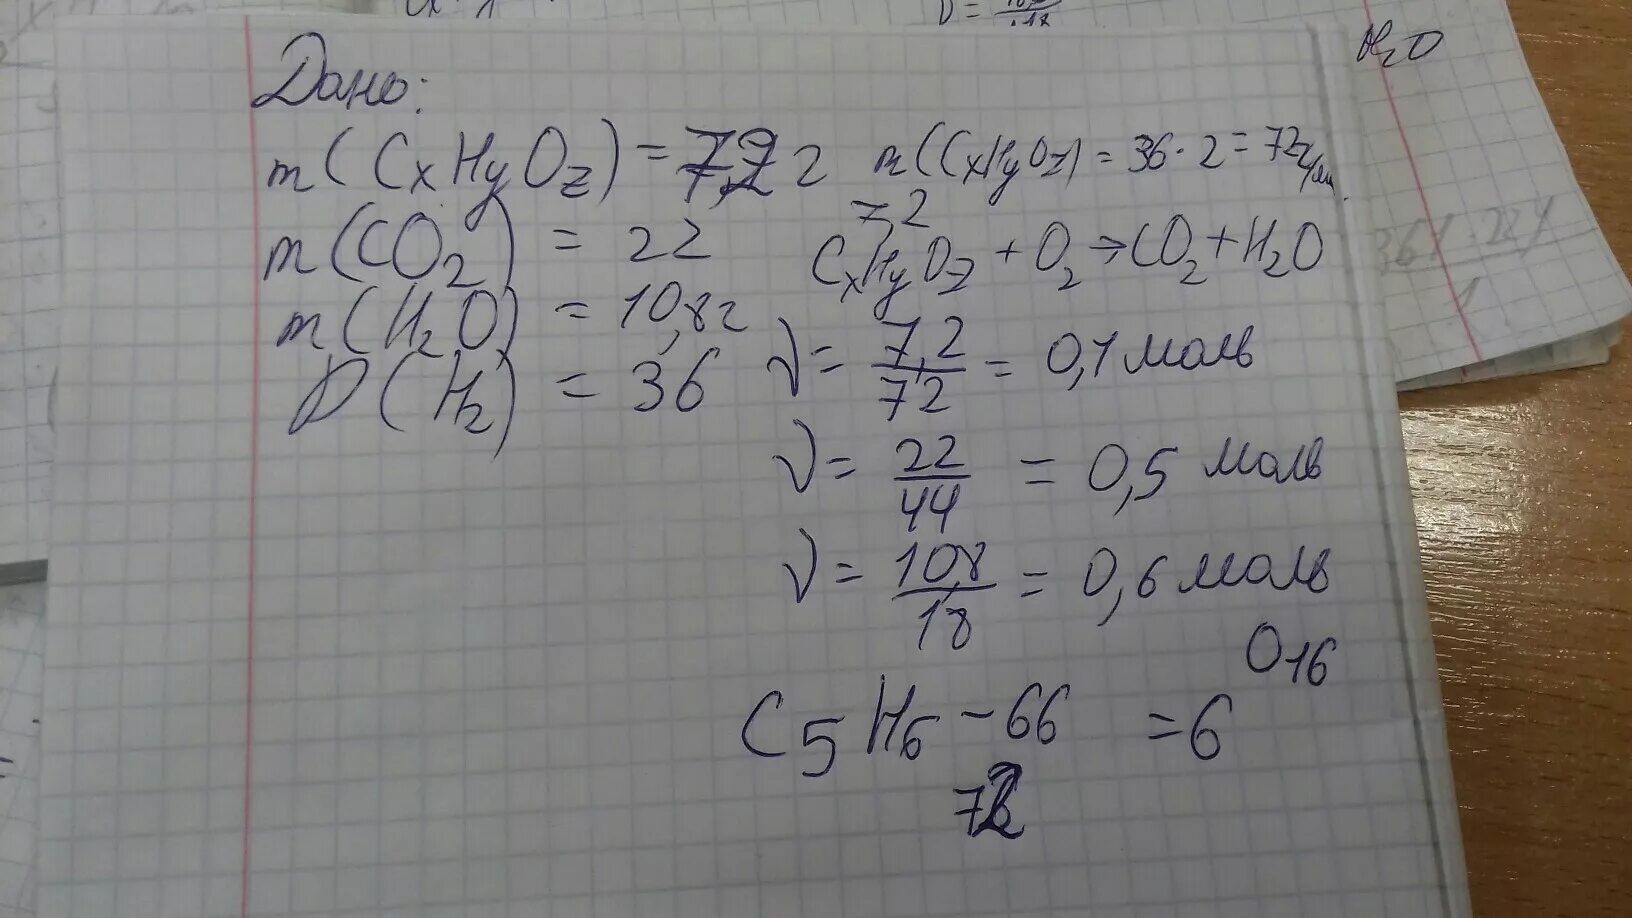 Дано:
m(CxHyOz) = 7,2 г
m(CO2) = 22
m(H2O) = 10,8г
D(H2) = 36
m(CxHyOz) = 36·2=72
7,2
CxHyOz + O2 → CO2 + H2O
ν = 7,2/72 = 0,1 моль
ν = 22/44 = 0,5 моль
ν = 10,8/18 = 0,6 моль
O16
C5H6 - 66 = 6
72
H2O